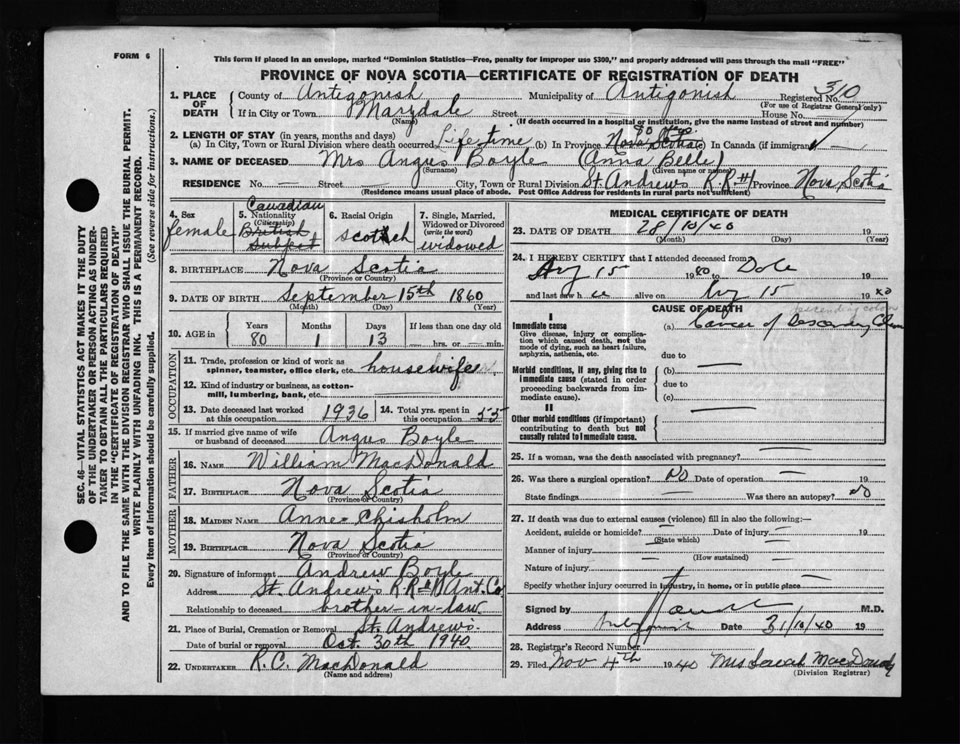 FORM 6
This form if placed in an envelope, marked "Dominion Statistics—Free, penalty for improper use $300," and properly addressed will pass through the mail "FREE"
PROVINCE OF NOVA SCOTIA—CERTIFICATE OF REGISTRATION OF DEATH
SEC. 46—VITAL STATISTICS ACT MAKES IT THE DUTY
OF THE UNDERTAKER OR PERSON ACTING AS UNDER-
TAKER TO OBTAIN ALL THE PARTICULARS REQUIRED
IN THE "CERTIFICATE OF REGISTRATION OF DEATH"
AND TO FILE THE SAME WITH THE DIVISION REGISTRAR WHO SHALL ISSUE THE BURIAL PERMIT.
WRITE PLAINLY WITH UNFADING INK. THIS IS A PERMANENT RECORD.
Every item of information should be carefully supplied. (See reverse side for instructions.)
1. PLACE OF DEATH County of Antigonish Municipality of Antigonish Registered No. 310
(For use of Registrar General only)
If in City or Town Marydale Street House No.
(Name) (If death occurred in a hospital or institution, give the name instead of street and number)
2. LENGTH OF STAY (in years, months and days) 80 yrs.
(a) In City, Town or Rural Division where death occurred Life time (b) In Province Nova Scotia (c) In Canada (if immigrant)
3. NAME OF DECEASED Mrs Angus Boyle (Anna Belle)
(Surname) (Given name or names)
RESIDENCE No. — Street — City, Town or Rural Division St. Andrews R.R#1 Province Nova Scotia
(Residence means usual place of abode. Post Office Address for residents in rural parts not sufficient)
4. Sex female
5. Nationality (Citizenship) Canadian British Subject
6. Racial Origin Scotch
7. Single, Married, Widowed or Divorced (write the word) widowed
8. BIRTHPLACE Nova Scotia
(Province or Country)
9. DATE OF BIRTH September 15th 1860
(Month) (Day) (Year)
10. AGE in Years 80 Months 1 Days 13 If less than one day old hrs. or min.
OCCUPATION
11. Trade, profession or kind of work as spinner, teamster, office clerk, etc. housewife
12. Kind of industry or business, as cotton-mill, lumbering, bank, etc.
13. Date deceased last worked at this occupation 1936 14. Total yrs. spent in this occupation 55
15. If married give name of wife or husband of deceased Angus Boyle
FATHER
16. NAME William MacDonald
17. BIRTHPLACE Nova Scotia
(Province or Country)
MOTHER
18. MAIDEN NAME Anne Chisholm
19. BIRTHPLACE Nova Scotia
(Province or Country)
20. Signature of informant Andrew Boyle
Address St. Andrews R.R#1 Ant. Co
Relationship to deceased brother-in-law.
21. Place of Burial, Cremation or Removal St. Andrew's.
Date of burial or removal Oct. 30th 1940.
22. UNDERTAKER R.C. MacDonald
(Name and address)
MEDICAL CERTIFICATE OF DEATH
23. DATE OF DEATH 28/10/40 19
(Month) (Day) (Year)
24. I HEREBY CERTIFY that I attended deceased from
Aug 15 1940 to Date 19
and last saw h er alive on Aug 15 1940
CAUSE OF DEATH descending colon
I
Immediate cause (a) Cancer of Descending Colon
Give disease, injury or complication which caused death, not the mode of dying, such as heart failure, asphyxia, asthenia, etc.
due to
Morbid conditions, if any, giving rise to immediate cause (stated in order proceeding backwards from immediate cause).
(b)
due to
(c)
II
Other morbid conditions (if important) contributing to death but not causally related to immediate cause.
25. If a woman, was the death associated with pregnancy? —
26. Was there a surgical operation? no Date of operation —
State findings — Was there an autopsy? no
27. If death was due to external causes (violence) fill in also the following:—
Accident, suicide or homicide? Date of injury 19
(State which)
Manner of injury
(How sustained)
Nature of injury
Specify whether injury occurred in industry, in home, or in public place
Signed by M.D.
Address Date 31/10/40 19
28. Registrar's Record Number
29. Filed Nov 4th 1940 Mrs Sarah MacDonald
(Division Registrar)